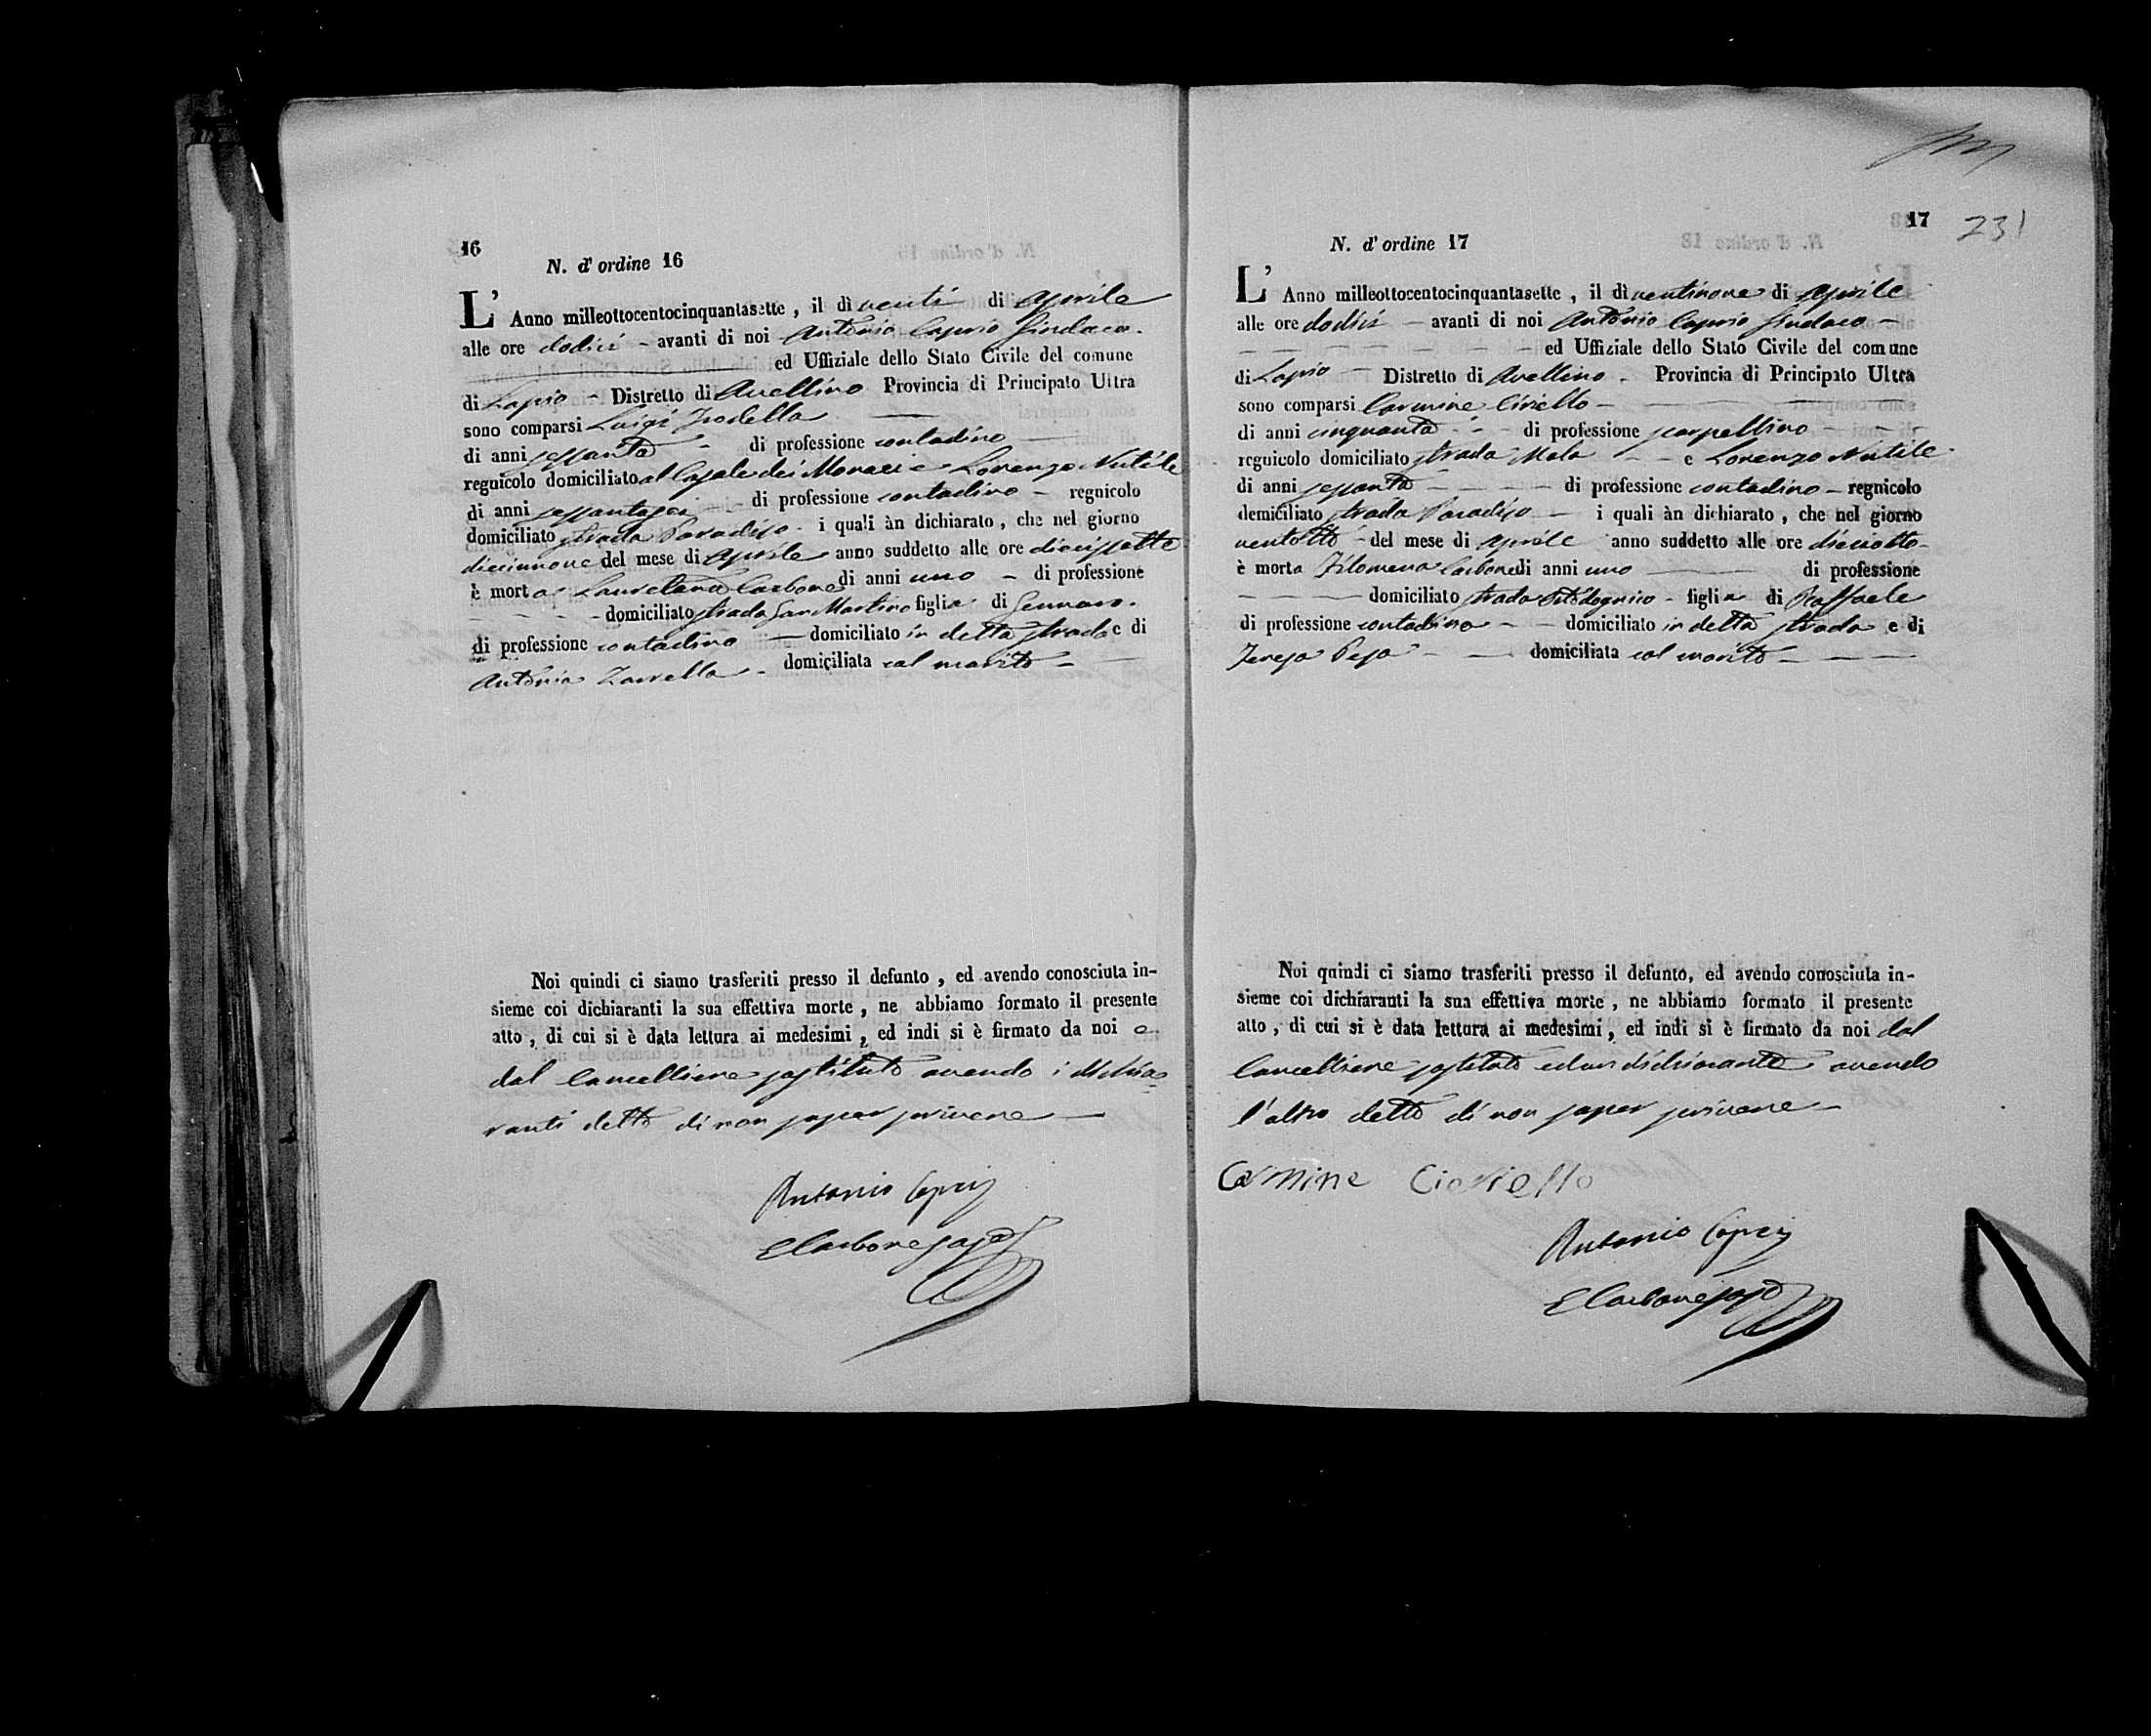 16
N. d' ordine 16
L' Anno milleottocentocinquantasette , il dì venti di Aprile
alle ore dodici – avanti di noi Antonio Caprio Sindaco
ed Uffiziale dello Stato Civile del comune
di Lapio – Distretto di Avellino Provincia di Principato Ultra
sono comparsi Luigi
di anni sessanta – di professione contadino
regnicolo domiciliato al Casale dei Monaci e Lorenzo Nutile
di anni sessantasei – di professione contadino – regnicolo
domiciliato strada Paradiso - i quali àn dichiarato , che nel giorno
diecinnove del mese di Aprile anno suddetto alle ore diecissette
è morta Lauretana Carbone di anni uno – di professione
– – – domiciliato strada San Martino figlia di Gennaro.
di professione contadino – domiciliato in detta strada e di
Antonia Zarrella - domiciliata col marito –
Noi quindi ci siamo trasferiti presso il defunto , ed avendo conosciuta in-
sieme coi dichiaranti la sua effettiva morte , ne abbiamo formato il presente
atto , di cui si è data lettura ai medesimi , ed indi si è firmato da noi e
dal Cancelliere sostituto avendo i dichia=
ranti detto di non saper scrivere —
Antonio Caprio
E Carbone sost
17
231
N. d' ordine 17
L' Anno milleottocentocinquantasette , il dì ventinove di Aprile
alle ore dodici – avanti di noi Antonio Caprio Sindaco –
– – – – – – ed Uffiziale dello Stato Civile del comune
di Lapio – Distretto di Avellino - Provincia di Principato Ultra
sono comparsi Carmine Ciriello –
di anni cinquanta - - - di professione scarpellino - - -
regnicolo domiciliato strada Mala – – e Lorenzo Nutile
di anni sessanta – – – – di professione contadino – regnicolo
domiciliato strada Paradiso – i quali àn dichiarato , che nel giorno
ventotto - del mese di Aprile anno suddetto alle ore dieciotto-
è morta Filomena Carbone di anni uno — di professione
– – – – domiciliato strada - figlia di Raffaele
di professione contadino - – domiciliato in detta strada e di
Teresa Pepa - – domiciliata col marito – – – –
Noi quindi ci siamo trasferiti presso il defunto, ed avendo conosciuta in-
sieme coi dichiaranti la sua effettiva morte , ne abbiamo formato il presente
atto , di cui si è data lettura ai medesimi , ed indi si è firmato da noi dal
Cancelliere sostituto ed un dichiarante avendo
l'altro detto di non saper scrivere –
Carmine Cioriello
Antonio Caprio
E Carbone sost